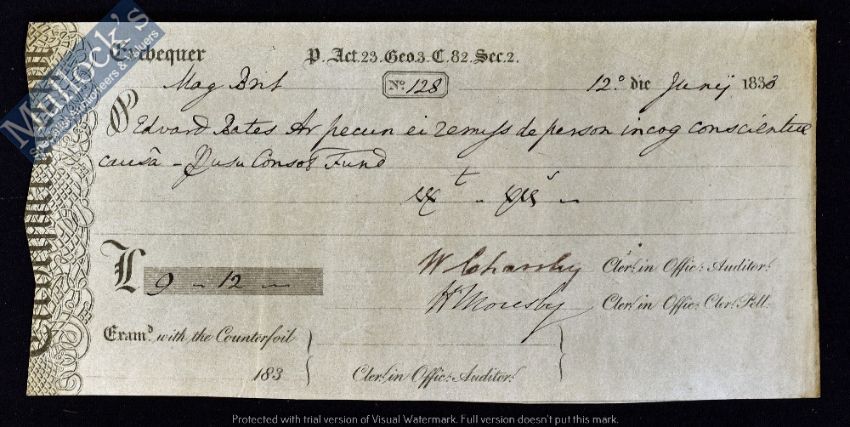 Mullock's
Auctioneers & Valuers
Exchequer P. Act. 23. Geo. 3. C. 82. Sec. 2.
Mag Brit No. 128 12.° die Junij 1833
P Edvard Bates Ar pecun ei remiss de person incog conscientiæ
causâ - Consos Fund
L 9 - 12 -
Cler. in Offic. Auditor.
H Moresby Cler. in Offic. Cler. Pell.
Exam.d with the Counterfoil
183 Cler. in Offic. Auditor.
Protected with trial version of Visual Watermark. Full version doesn't put this mark.